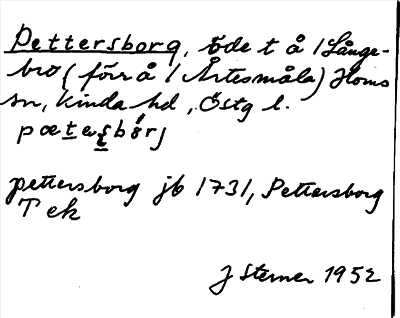 Pettersborg, öde t å 1 Långe-
bro (förr å 1 Årtesmåla) Horns
sn, Kinda hd, Östg l.
pætəʂbórj
pettersborg jb 1731, Pettersborg
T ek
J Sterner 1952